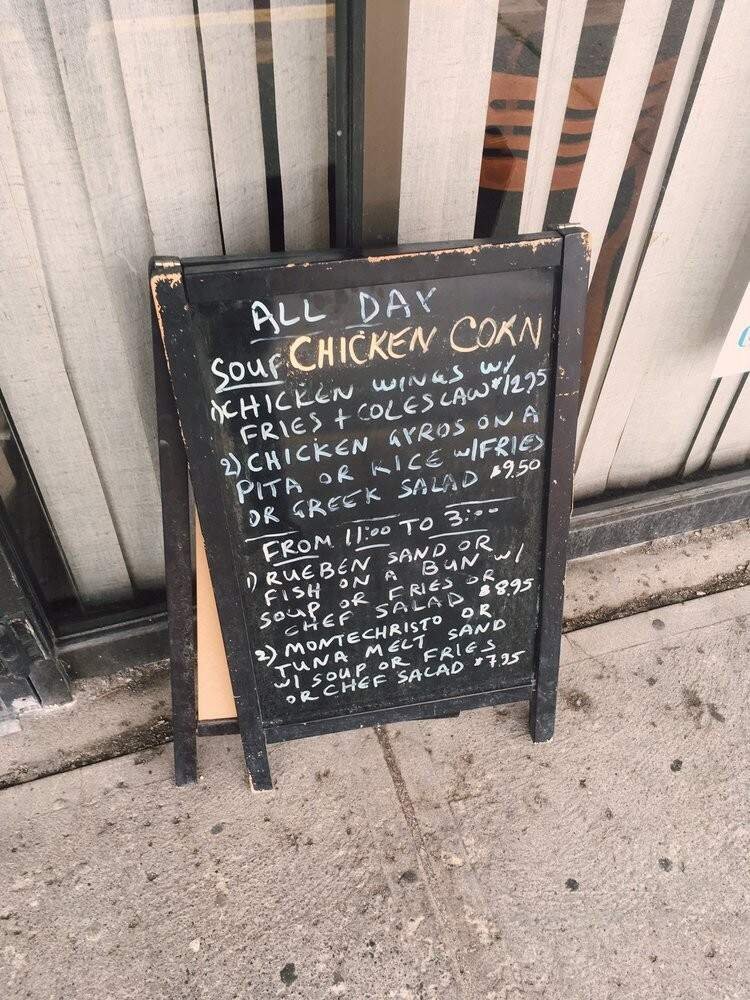 ALL DAY
SOUP CHICKEN CORN
1) CHICKEN WINGS W/
FRIES + COLESLAW $12.95
2) CHICKEN GYROS ON A
PITA OR RICE W/FRIES
OR GREEK SALAD $9.50
FROM 11:00 TO 3:00
1) RUEBEN SAND OR
FISH ON A BUN W/
SOUP OR FRIES OR
CHEF SALAD $8.95
2) MONTECHRISTO OR
TUNA MELT SAND
W/ SOUP OR FRIES
OR CHEF SALAD $7.95